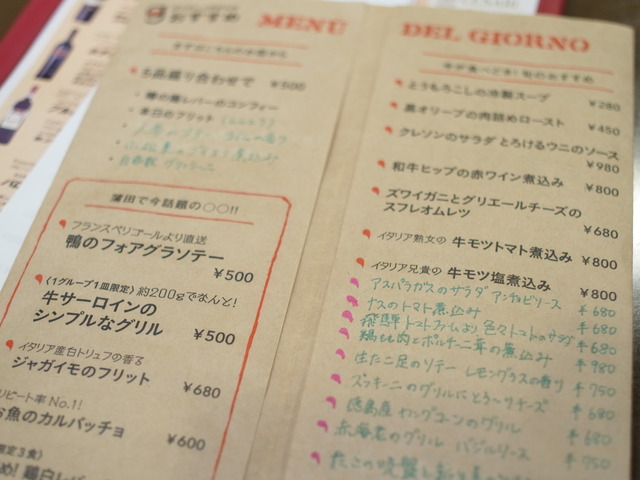 おすすめ MENU
5品盛り合わせで ¥500
・鶏の雞レバーのコンフィー
・本日のフリット
・自家製 グリッシーニ
蒲田で今話題の〇〇!!
フランスペリゴールより直送
鴨のフォアグラソテー
¥500
〈1グループ1皿限定〉約200gでなんと!
牛サーロインの
シンプルなグリル ¥500
イタリア産白トリュフの香る
ジャガイモのフリット ¥680
ピート率No.1!
魚のカルパッチョ ¥600
定3食〉
め! 鶏白レバ
DEL GIORNO
今が食べどき!旬のおすすめ
とうもろこしの冷製スープ ¥280
黒オリーブの肉詰めロースト ¥450
クレソンのサラダ とろけるウニのソース
¥980
和牛ヒップの赤ワイン煮込み ¥800
ズワイガニとグリエールチーズの
スフレオムレツ ¥680
イタリア熟女の 牛モツトマト煮込み ¥800
イタリア兄貴の 牛モツ塩煮込み ¥800
アスパラガスのサラダ アンチョビソース ¥680
ナスのトマト煮込み ¥680
飛騨トマトファームより 色々トマトのサラダ ¥680
鶏もも肉とポルチーニ茸の煮込み ¥980
生たこ足のソテー レモングラスの香り ¥750
ズッキーニのグリル とろ〜りチーズ ¥680
徳島産 ヤングコーンのグリル ¥680
赤海老のグリル バジルソース ¥750